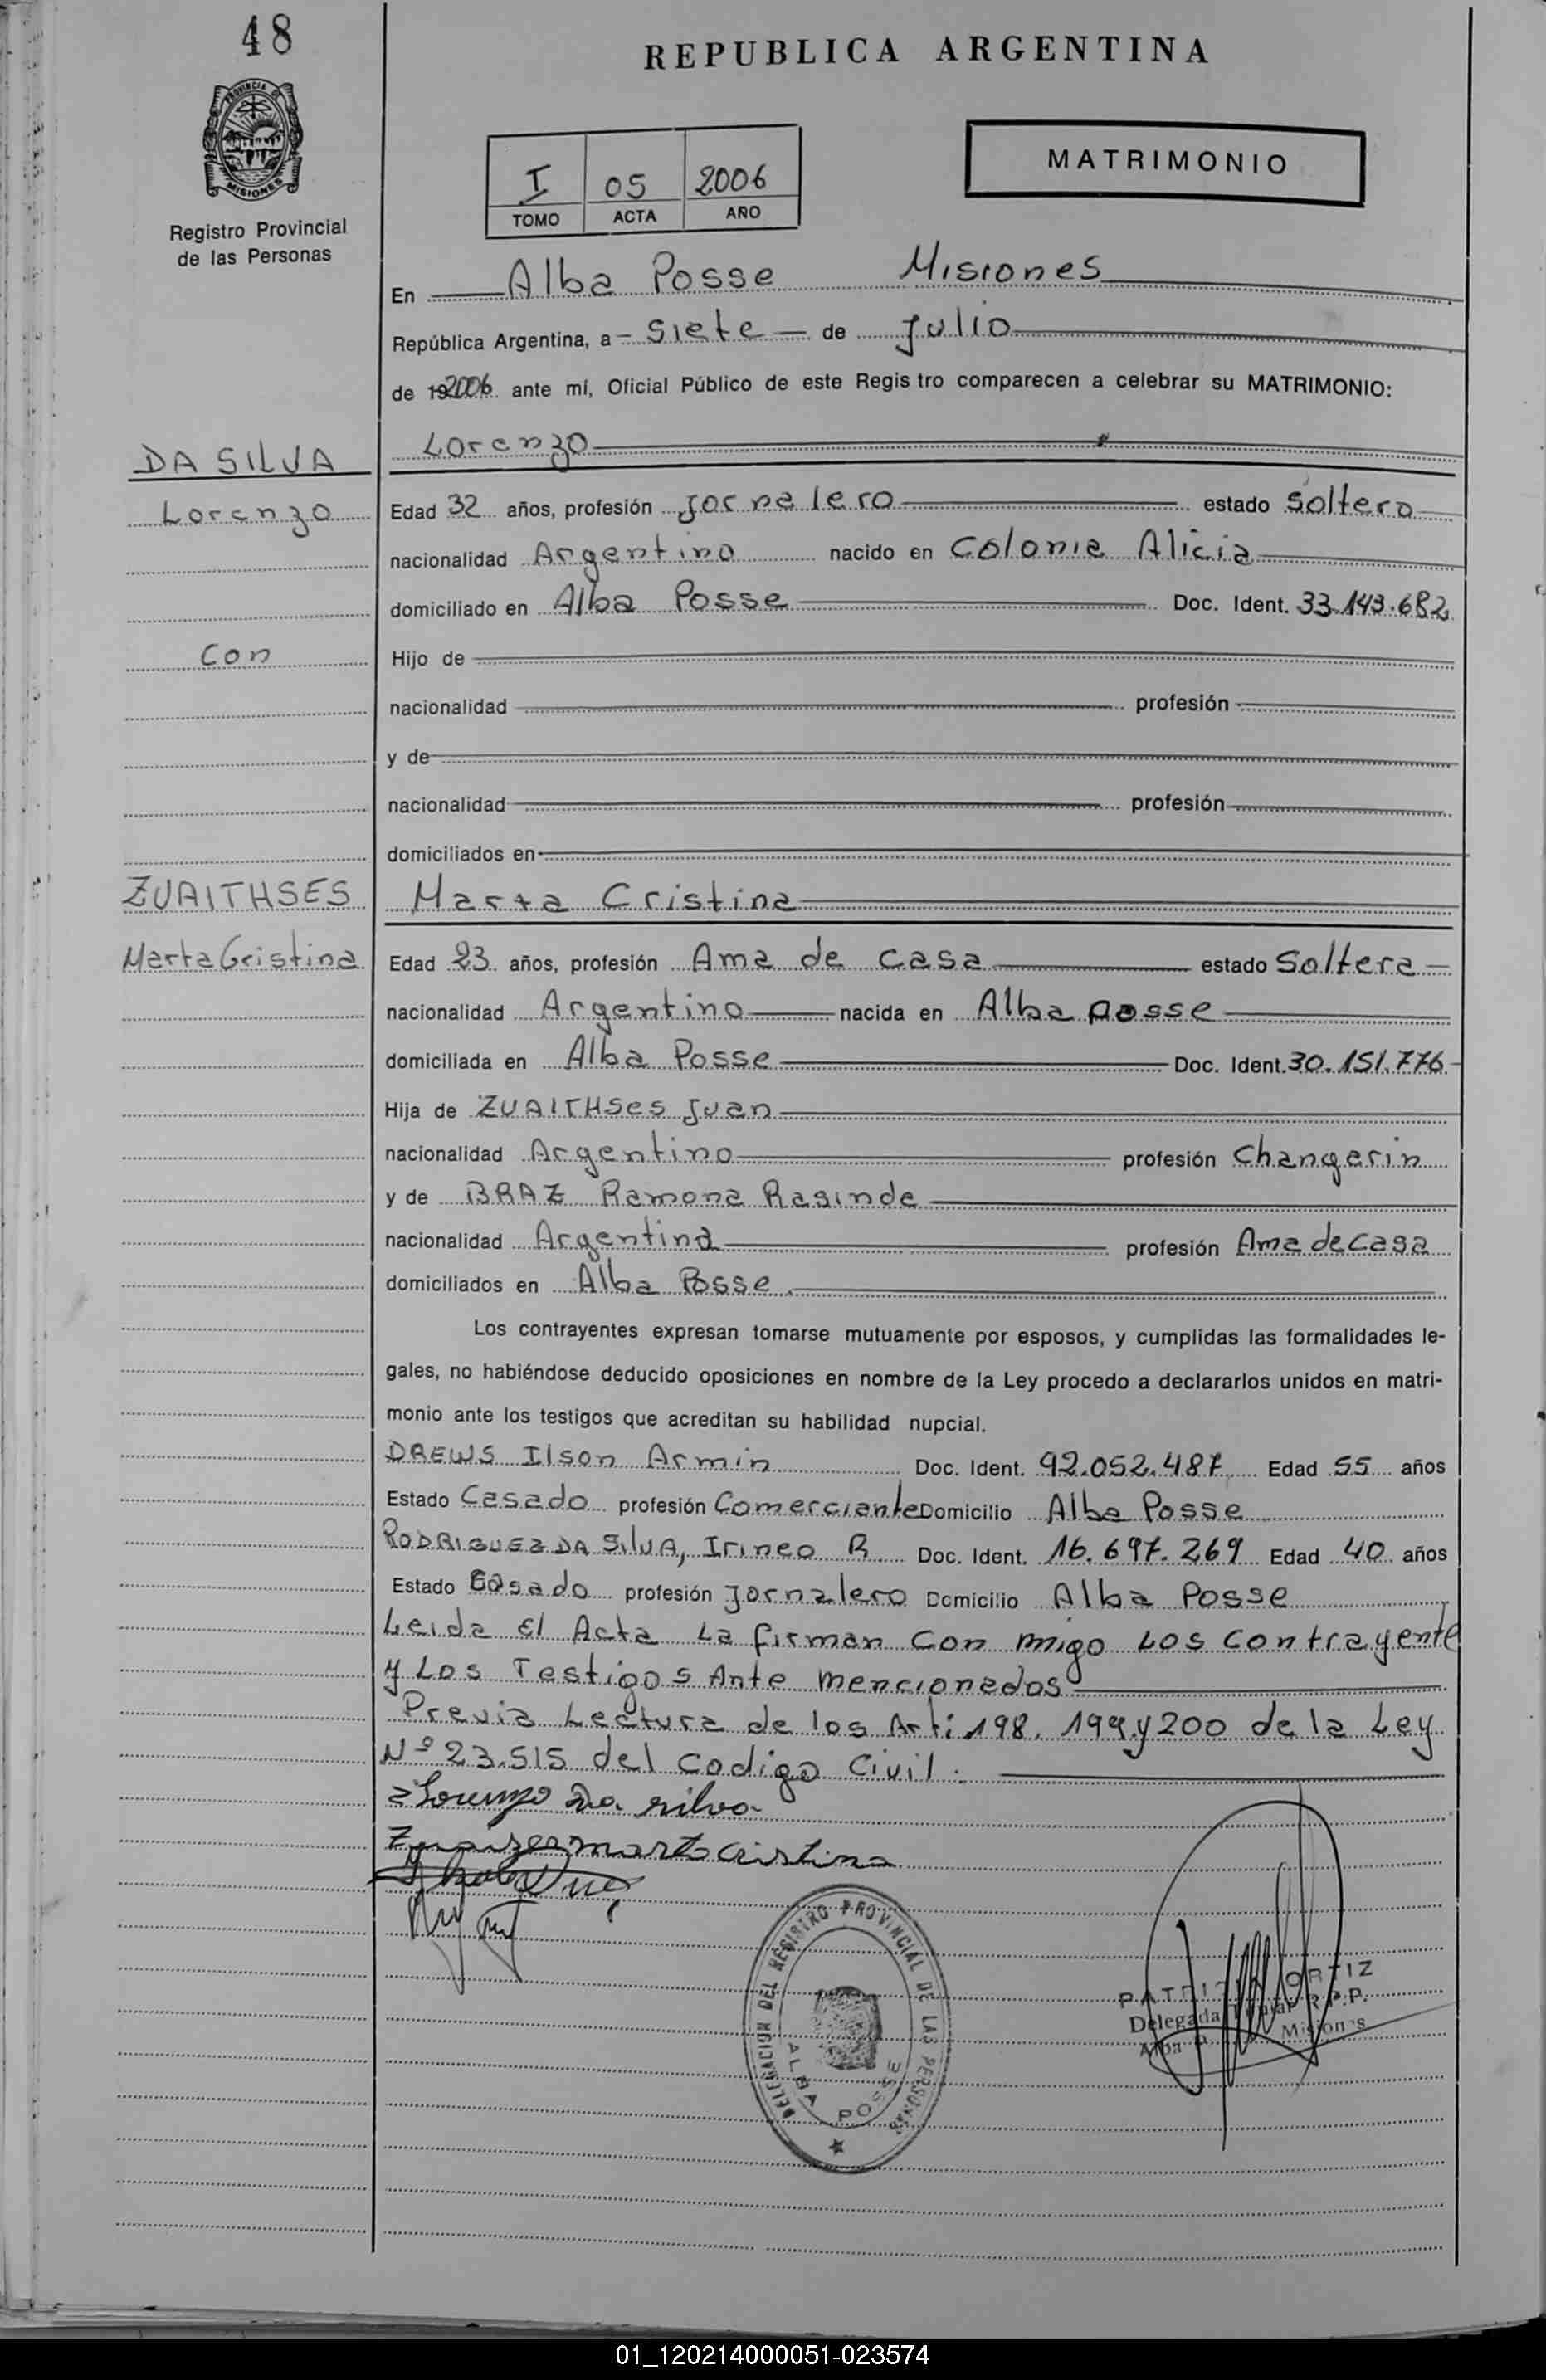 48
REPUBLICA ARGENTINA
PROVINCIA DE
MISIONES
Registro Provincial
de las Personas
I 05 2006
TOMO ACTA AÑO
MATRIMONIO
En Alba Posse Misiones
República Argentina, a siete de Julio
de 192006 ante mí, Oficial Público de este Regis tro comparecen a celebrar su MATRIMONIO:
DA SILVA Lorenzo
Lorenzo Edad 32 años, profesión Jornalero estado Soltero
nacionalidad Argentino nacido en Colonia Alicia
domiciliado en Alba Posse Doc. Ident. 33.143.682
con Hijo de
nacionalidad profesión
y de
nacionalidad profesión
domiciliados en
ZUAITHSES Marta Cristina
Marta Cristina Edad 23 años, profesión Ama de casa estado Soltera
nacionalidad Argentino nacida en Alba posse
domiciliada en Alba Posse Doc. Ident. 30.151.776
Hija de ZUAITHSes Juan
nacionalidad Argentino profesión Changerin
y de BRAZ Ramona Rasinde
nacionalidad Argentina profesión Ama de casa
domiciliados en Alba Posse
Los contrayentes expresan tomarse mutuamente por esposos, y cumplidas las formalidades le-
gales, no habiéndose deducido oposiciones en nombre de la Ley procedo a declararlos unidos en matri-
monio ante los testigos que acreditan su habilidad nupcial.
DREWS Ilson Armin Doc. Ident. 92.052.487 Edad 55 años
Estado Casado profesión Comerciante Domicilio Alba Posse
RODRIGUEZ DA SilVA, Irineo R Doc. Ident. 16.697.269 Edad 40 años
Estado Casado profesión Jornalero Domicilio Alba Posse
Leida El Acta La firman Con migo Los Contrayente
y Los Testigos Ante mencionados
Previa Lectura de los Arti 198. 199 y 200 de la Ley
Nº 23.515 del Codigo Civil.
Lorenzo Da silva
marta cristina
DELEGACION DEL REGISTRO PROVINCIAL DE LAS PERSONAS
ALBA POSSE
ORTIZ
Delegada Titular R.P.P.
Alba Misiones
01_120214000051-023574